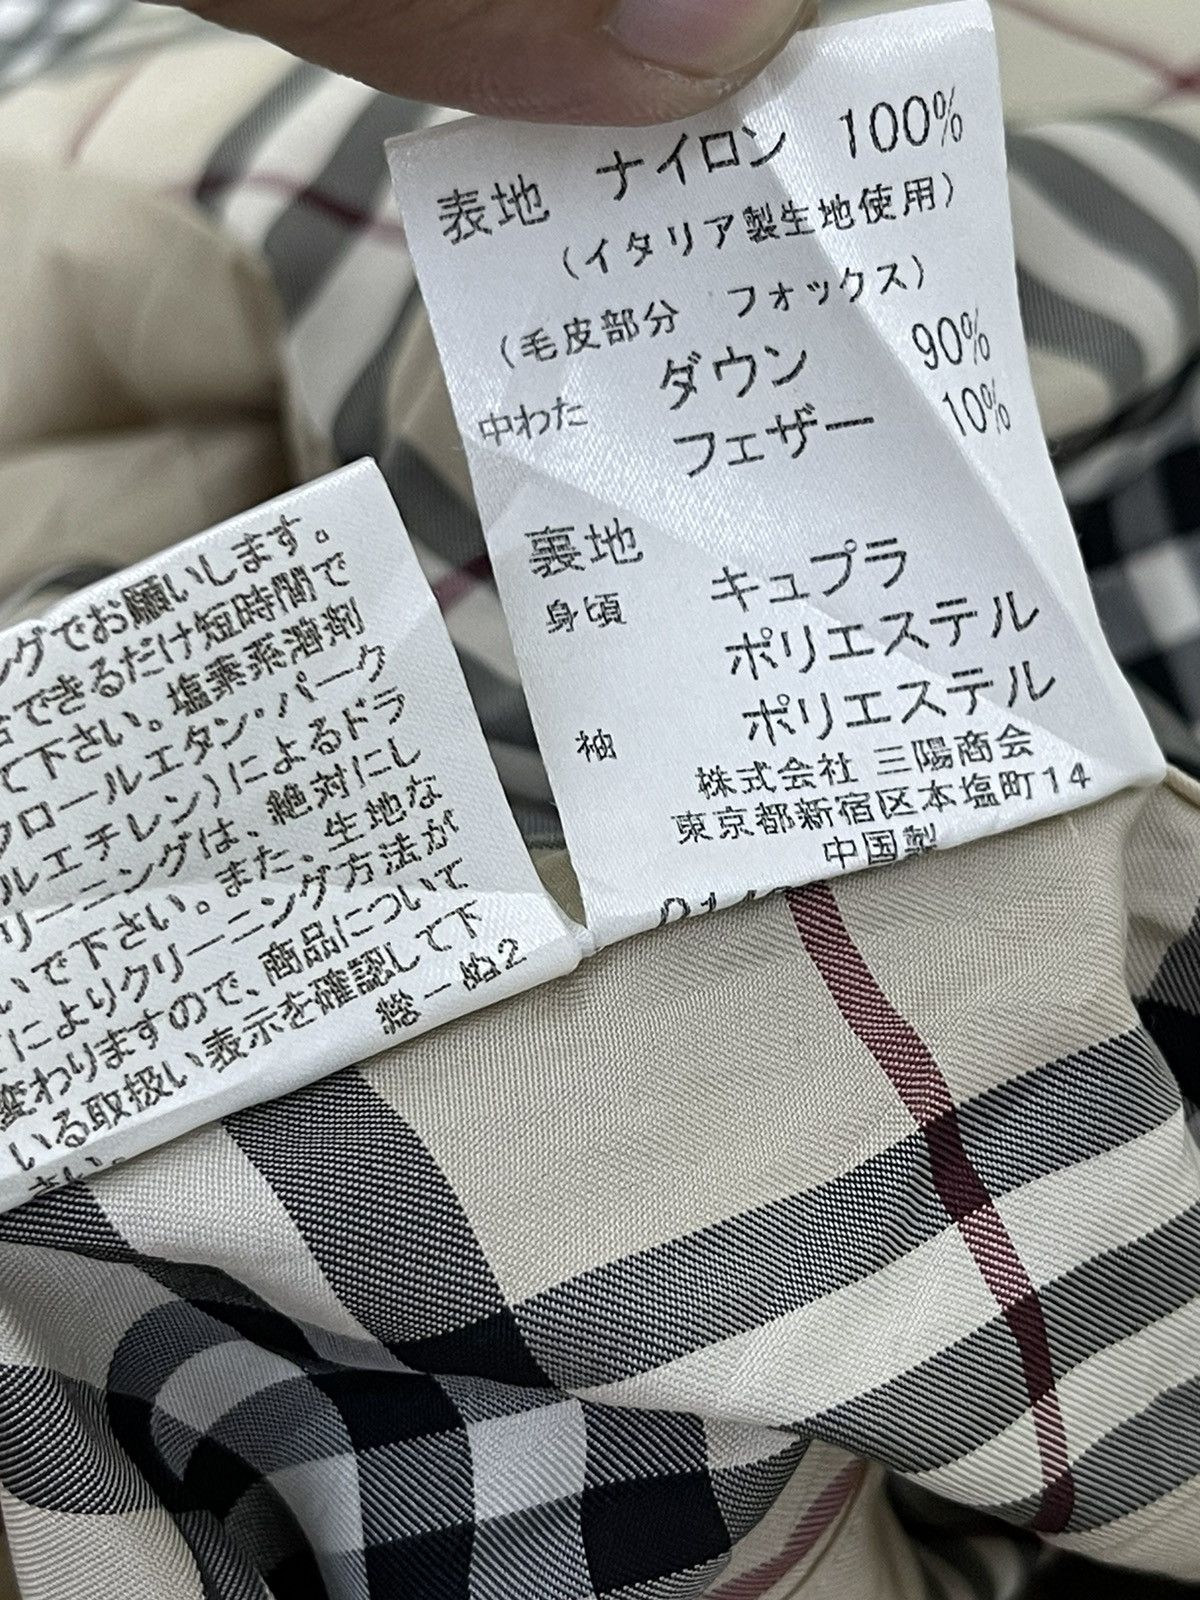 表地 ナイロン 100%
(イタリア製生地使用)
(毛皮部分 フォックス)
中わた ダウン 90%
フェザー 10%
裏地
身頃 キュプラ
ポリエステル
袖 ポリエステル
株式会社 三陽商会
東京都新宿区本塩町14
中国製
ングでお願いします。
できるだけ短時間で
て下さい。塩素系溶剤
ロールエタン・パーク
ルエチレン)によるドラ
リーニングは、絶対にし
いで下さい。また、生地な
によりクリーニング方法が
変わりますので、商品について
いる取扱い表示を確認して下
さい。
総－ぬ2